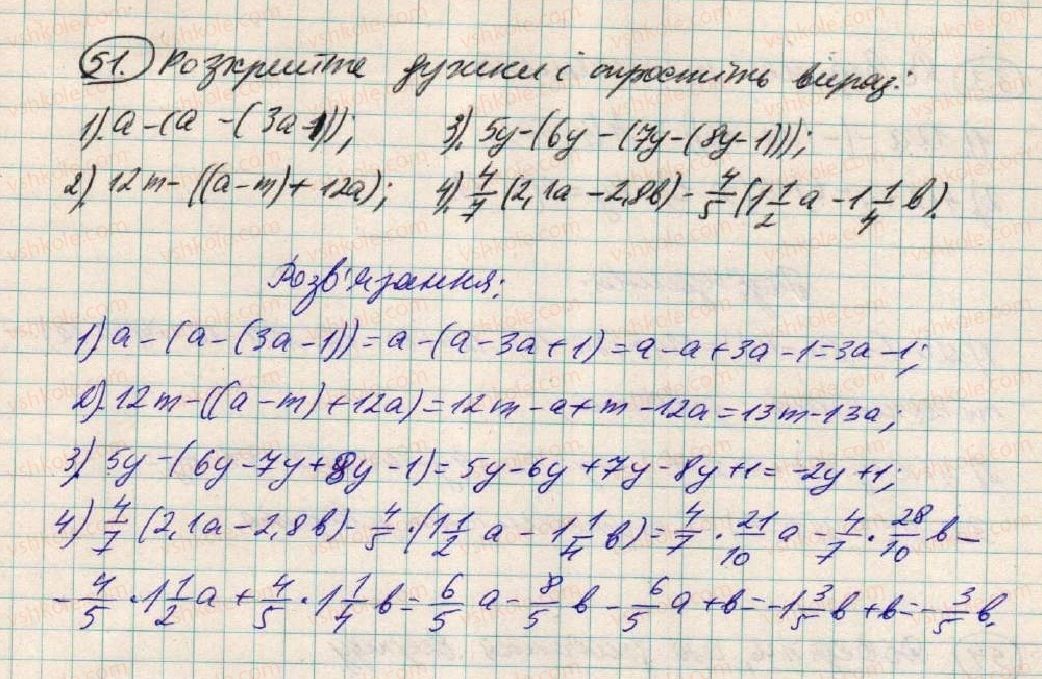 51. Розкрийте дужки і спростіть вираз:
1). a - (a - (3a - 1)); 3). 5y - (6y - (7y - (8y - 1)));
2). 12m - ((a - m) + 12a); 4). 4/7 (2,1a - 2,8b) - 4/5 (1 1/2 a - 1 1/4 b).
Розв'язання:
1) a - (a - (3a - 1)) = a - (a - 3a + 1) = a - a + 3a - 1 = 3a - 1;
2). 12m - ((a - m) + 12a) = 12m - a + m - 12a = 13m - 13a;
3) 5y - (6y - 7y + 8y - 1) = 5y - 6y + 7y - 8y + 1 = -2y + 1;
4) 4/7 (2,1a - 2,8b) - 4/5 · (1 1/2 a - 1 1/4 b) = 4/7 · 21/10 a - 4/7 · 28/10 b -
- 4/5 · 1 1/2 a + 4/5 · 1 1/4 b = 6/5 a - 8/5 b - 6/5 a + b = -1 3/5 b + b = - 3/5 b.